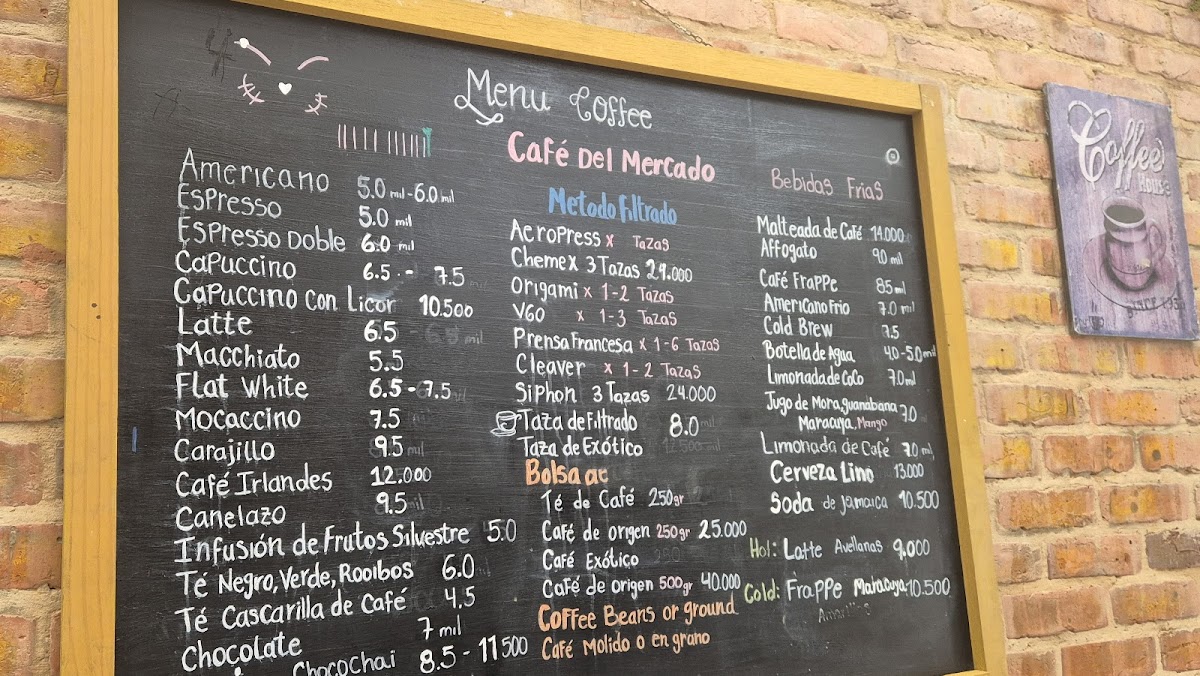 Menu Coffee
Café Del Mercado
Americano 5.0 mil-6.0 mil
Espresso 5.0 mil
Espresso Doble 6.0 mil
Capuccino 6.5 - 7.5
Capuccino con Licor 10.500
Latte 6.5
Macchiato 5.5
Flat White 6.5-7.5
Mocaccino 7.5
Carajillo 9.5 mil
Café Irlandes 12.000
Canelazo 9.5 mil
Infusión de Frutos Silvestre 5.0
Té Negro, Verde, Rooibos 6.0
Té Cascarilla de Café 4.5
Chocolate 7 mil
Chocochai 8.5-11500
Metodo Filtrado
AeroPress x Tazas
Chemex 3 Tazas 24.000
Origami x 1-2 Tazas
V60 x 1-3 Tazas
Prensa Francesa x 1-6 Tazas
Cleaver x 1-2 Tazas
Siphon 3 Tazas 24.000
Taza de Filtrado 8.0 mil
Taza de Exótico
Bolsa
Té de Café 250gr
Café de origen 250gr 25.000
Café Exótico
Café de origen 500gr 40.000
Coffee Beans or ground
Café Molido o en grano
Bebidas Frias
Malteada de Café 14.000
Affogato 9.0 mil
Café Frappe 8.5 mil
Americano Frio 7.0 mil
Cold Brew 7.5
Botella de Agua 4.0-5.0 mil
Limonada de Coco 7.0 ml
Jugo de Mora, guanabana 7.0
Maracuya, Mango
Limonada de Café 7.0 mil
Cerveza Lino 13.000
Soda de Jamaica 10.500
Hot: Latte Avellanas 9.000
Cold: Frappe Maracuya 10.500
Coffee
House